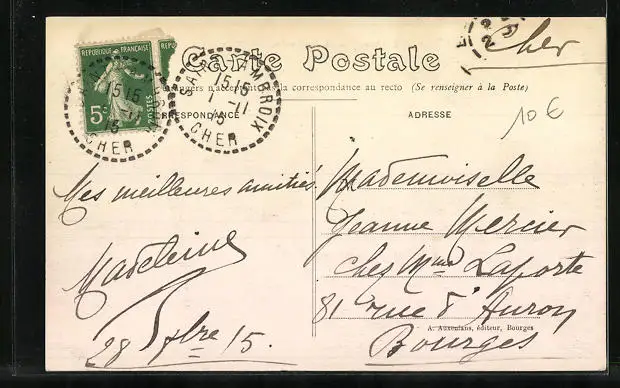 Carte Postale
Cher
(Se renseigner à la Poste)
la correspondance au recto
CORRESPONDANCE
ADRESSE
10 €
REPUBLIQUE FRANÇAISE
5c
POSTES
REPU
15 15
1 -11
15
CHER
SAINT AMBROIX
15 15
1 -11
15
CHER
Mes meilleures amitiés.
Madeleine
28 bre 15.
Mademoiselle
Jeanne Mercier
chez Mme Laporte
81 rue d'Auron
Bourges
A. Auxenfans, éditeur, Bourges